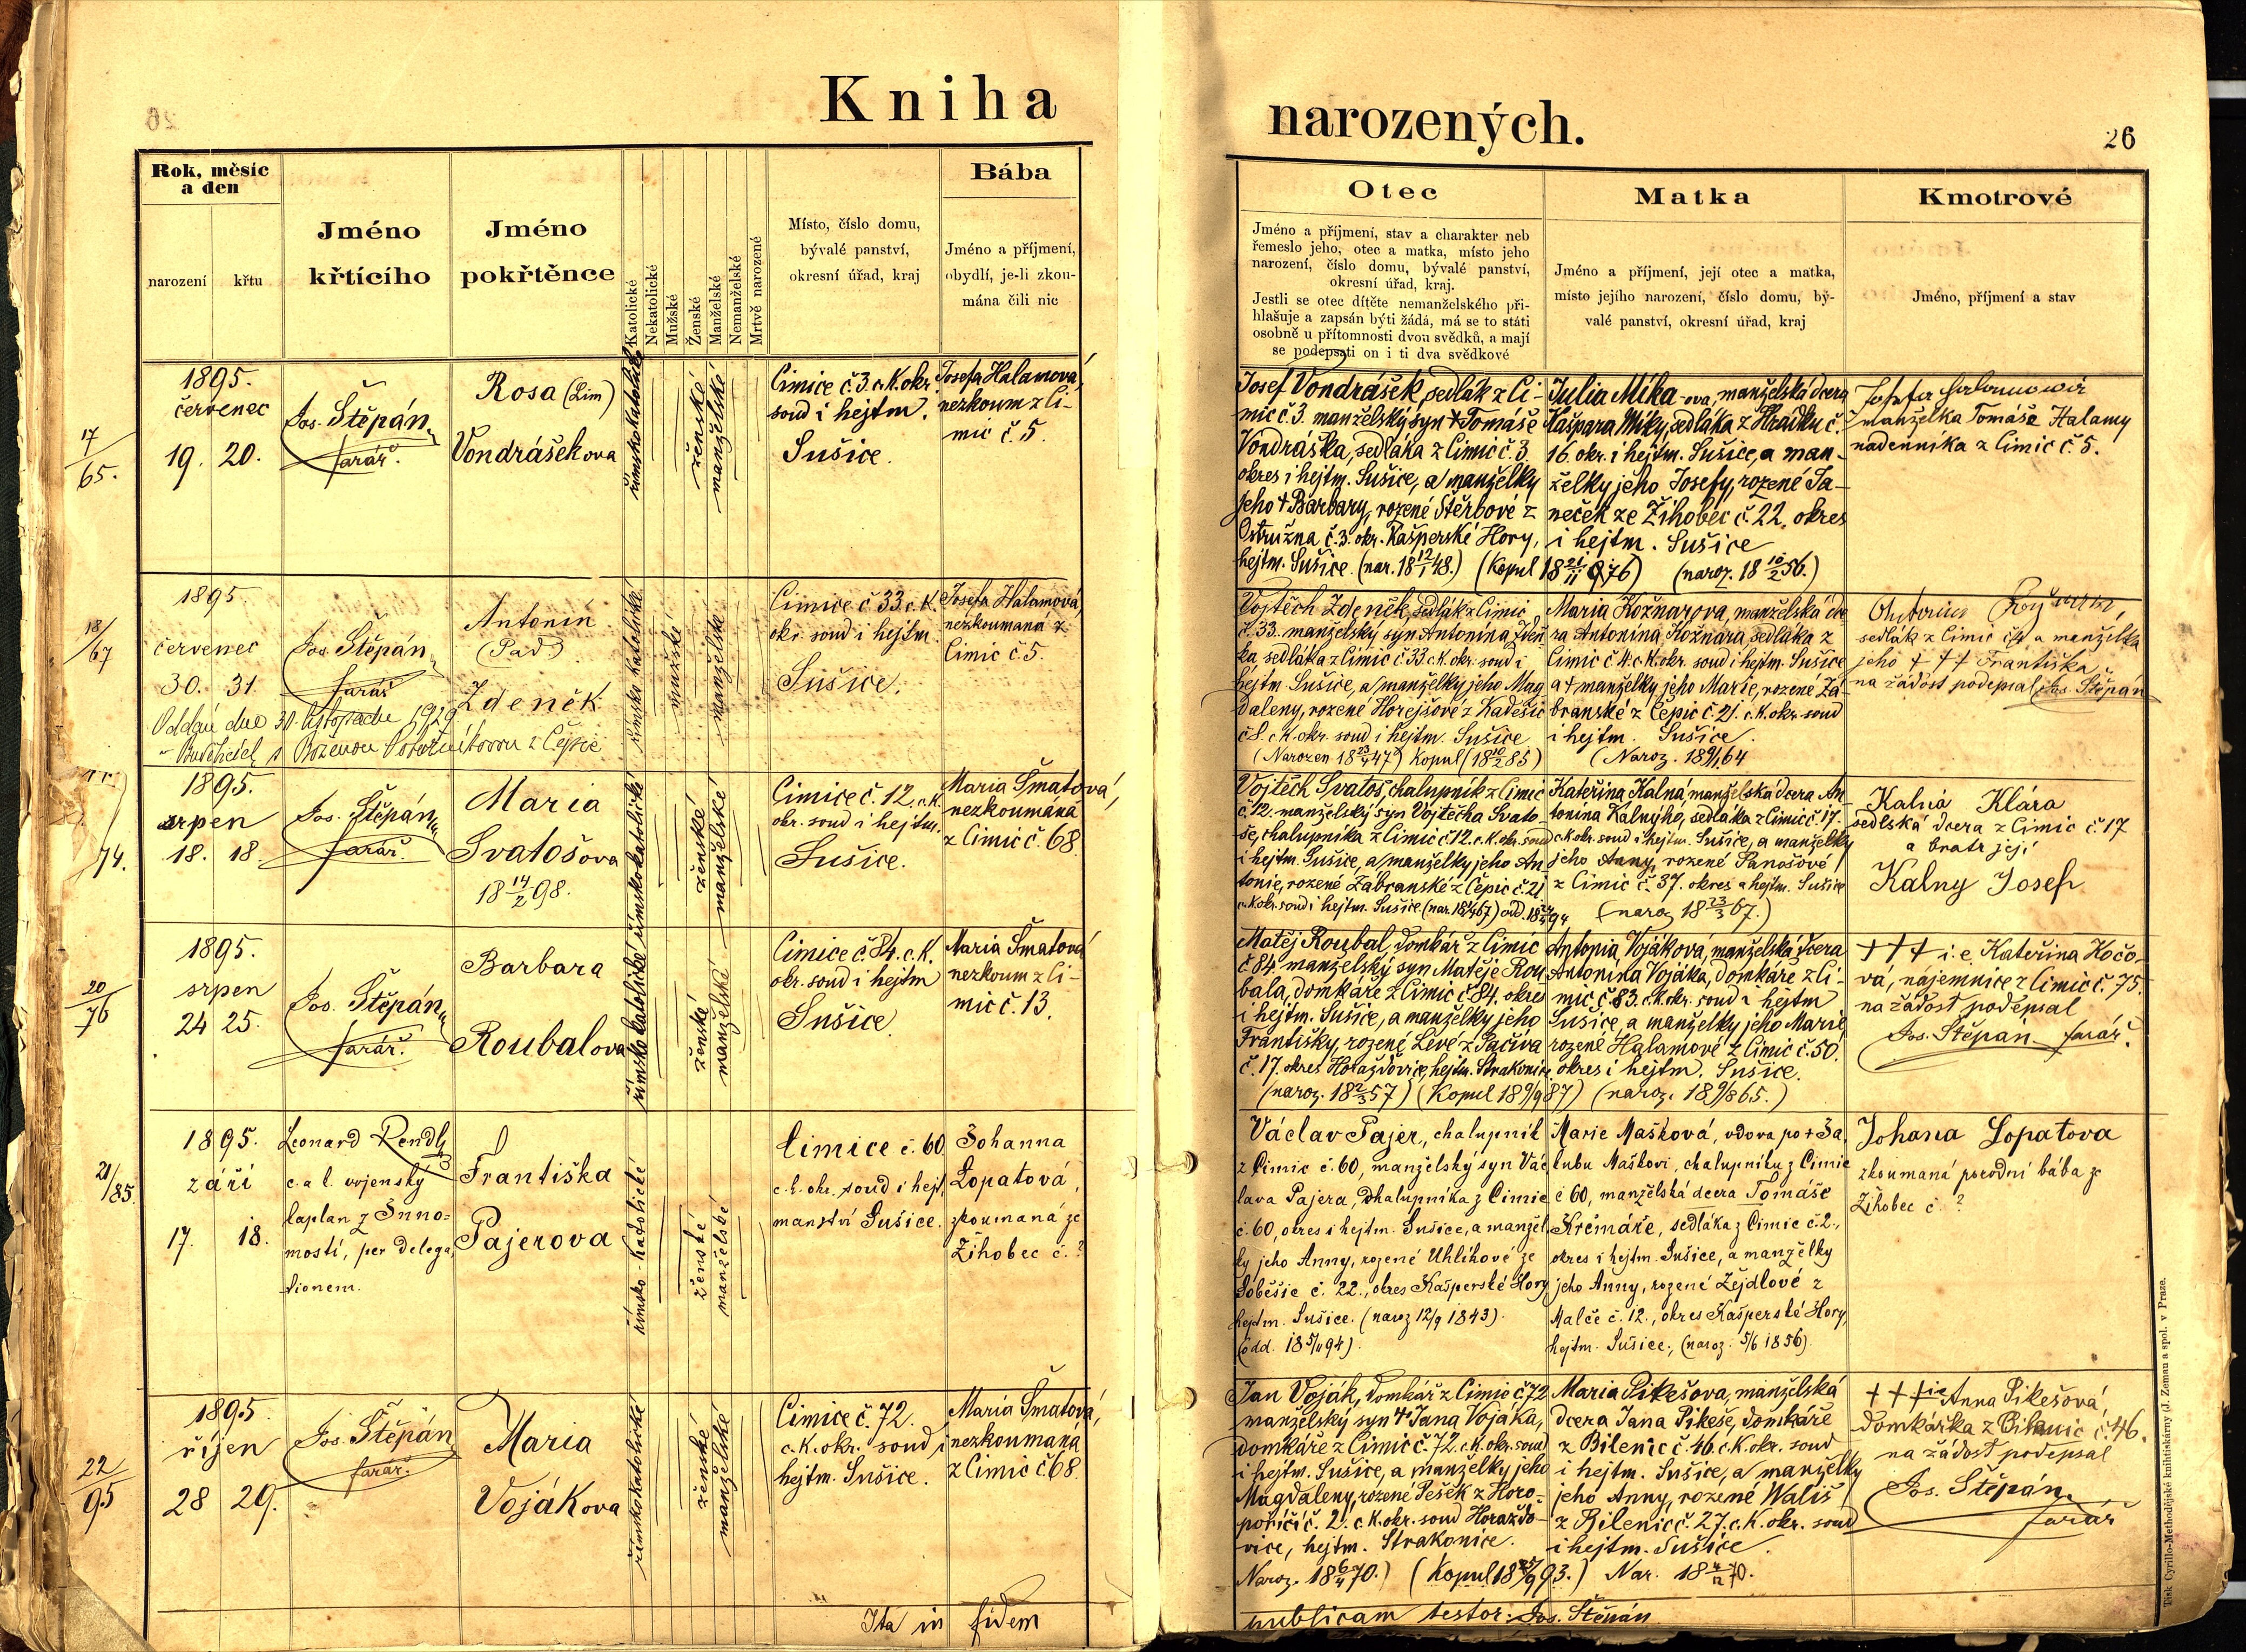 Kniha
narozených.
26
Rok, měsíc
a den
narození
křtu
Jméno
křtícího
Jméno
pokřtěnce
Katolické
Nekatolické
Mužské
Ženské
Manželské
Nemanželské
Mrtvě narozené
Místo, číslo domu,
bývalé panství,
okresní úřad, kraj
Bába
Jméno a příjmení,
obydlí, je-li zkou-
mána čili nic
Otec
Jméno a příjmení, stav a charakter neb
řemeslo jeho, otec a matka, místo jeho
narození, číslo domu, bývalé panství,
okresní úřad, kraj.
Jestli se otec dítěte nemanželského při-
hlašuje a zapsán býti žádá, má se to státi
osobně u přítomnosti dvou svědků, a mají
se podepsati on i ti dva svědkové
Matka
Jméno a příjmení, její otec a matka,
místo jejího narození, číslo domu, bý-
valé panství, okresní úřad, kraj
Kmotrové
Jméno, příjmení a stav
17/65.
1895.
červenec
19. 20.
Jos. Štěpán
farář.
Rosa (Lim)
Vondrášekova
římskokatolické
ženské
manželské
Cimice č. 3. c. K. okr.
soud i hejtm.
Sušice.
Josefa Halamová,
nezkoum z Ci-
mic č. 5.
Josef Vondrášek, sedlák z Ci-
mic č. 3. manželský syn † Tomáše
Vondráška, sedláka z Cimic č. 3.
okres i hejtm. Sušice, a manželky
jeho † Barbary, rozené Štěrbové z
Ostružna č. 3. okr. Kašperské Hory,
hejtm. Sušice. (nar. 18 12/1 48.) (Kopul
Julia Míka-ova, manželská dcera
Kašpara Míky, sedláka z Hrádku č.
16. okr. i hejtm. Sušice, a man-
želky jeho Josefy, rozené Ja-
neček ze Žihobec č. 22. okres
i hejtm. Sušice
(naroz. 18 10/2 56.)
manželka Tomáše Halamy
nadenníka z Cimic č. 5.
18/67
1895.
červenec
30. 31.
Jos. Štěpán
farář
Antonín
(Pad.)
Zdeněk
římsko katolické
mužské
manželské
Cimice č 33. c. K.
okr. soud i hejtm.
Sušice.
Josefa Halamová,
nezkoumaná z
Cimic č. 5.
Oddán dne 30. listopadu 1929
Vojtěch Zdeněk, sedlák z Cimic
č. 33. manželský syn Antonína Zdeň-
ka sedláka z Cimic č 33. c. K. okr. soud i
hejtm. Sušice, a manželky jeho Mag
daleny, rozené Horejšové z Kadešic
č 8. c. K. okr. soud i hejtm. Sušice
(Narozen 18 23/4 47) Kopul (18 10/2 85)
Maria Kožnarova, manželská dce
ra Antonína Kožnara, sedláka z
Cimic č 4. c. K. okr. soud i hejtm. Sušice
a † manželky jeho Marie, rozené Zá-
branské z Čepic č. 21. c. K. okr. soud
i hejtm. Sušice.
sedlák z Cimic č 4 a manželka
jeho † † † Františka
na žádost podepsal Jos. Štěpán
74.
1895.
srpen
18. 18.
Jos. Štěpán
farář.
Maria
Svatošova
18 14/2 98.
římskokatolické
ženské
manželské
Cimice č. 12. c. K.
okr. soud i hejtm.
Sušice.
Maria Šmatová,
nezkoumaná
z Cimic č. 68.
Vojtěch Svatoš, chalupník z Cimic
č. 12. manželský syn Vojtěcha Svato-
še, chalupníka z Cimic č 12. c. K. okr. soud
i hejtm. Sušice, a manželky jeho An-
tonie, rozené Zábranské z Čepic č. 21
Kateřina Kalná, manželská dcera An
tonína Kalnýho, sedláka z Cimic č. 17.
c. k. okr. soud i hejtm. Sušice, a manželky
jeho Anny, rozené Panošové
z Cimic č. 37. okres a hejtm. Sušice
(naroz 18 23/3 67.)
Kalná Klára
sedlská dcera z Cimic č. 17
a bratr její
Kalny Josef
20/76
1895.
srpen
24 25.
Jos. Štěpán
farář.
Barbara
Roubalova
římsko katolické
ženské
manželské
Cimice č. 84. c. K.
okr. soud i hejtm
Sušice
Maria Šmatová
nezkoum z Ci-
mic č. 13.
Matěj Roubal, domkář z Cimic
č 84. manželský syn Matěje Rou
bala, domkáře z Cimic č. 84. okres
i hejtm. Sušice, a manželky jeho
Františky, rozené Léve z Pačiva
č. 17. okres Horažďovice, hejtm. Strakonice
(naroz. 18 2/3 57) (Kopul 18 9/9 87)
Antonia Vojáková, manželská dcera
Antonína Vojáka, domkáře z Ci-
mic č. 83. c. K. okr. soud i hejtm
Sušice, a manželky jeho Marie
rozené Halamové z Cimic č. 50.
okres i hejtm. Sušice.
(naroz. 18 9/8 65.)
† † † i. e. Kateřina Kočo-
vá, nájemnice z Cimic č. 75.
na žádost podepsal
Jos. Štěpán farář.
21/85.
1895.
září
17. 18.
Leonard Rendl
c. a k. vojenský
kaplan z Inno-
mostí, per delega-
tionem.
Františka
Pajerova
římsko-katolické
ženské
manželské
Cimice č. 60
c. k. okr. soud i hejt-
manství Sušice.
Johanna
Lopatová,
zkoumaná ze
Žihobec č. ?
Václav Pajer, chalupník
z Cimic č. 60, manželský syn Vác
lava Pajera, chalupníka z Cimic
č. 60, okres i hejtm. Sušice, a manžel
ky jeho Anny, rozené Uhlíkové ze
Soběšic č. 22., okres Kašperské Hory
hejtm. Sušice. (naroz 12/9 1843).
(odd. 18 5/11 94).
Marie Mašková, vdova po † Ja
kubu Maškovi, chalupníku z Cimic
č 60, manželská dcera Tomáše
Krčmáře, sedláka z Cimic č. 2.,
okres i hejtm. Sušice, a manželky
jeho Anny, rozené Zejdlové z
Malče č. 12., okres Kašperské Hory
hejtm. Sušice., (naroz. 5/6 1856).
Johana Lopatova
zkoumaná porodní bába ze
Žihobec č. ?
22/95
1895
říjen
28 29.
Jos. Štěpán
farář.
Maria
Vojákova
římskokatolické
ženské
manželské
Cimice č. 72.
c. K. okr. soud i
hejtm. Sušice.
Maria Šmatová,
nezkoumaná
z Cimic č 68.
Jan Voják, domkář z Cimic č 72
manželský syn † Jana Vojáka,
domkáře z Cimic č. 72. c. K. okr. soud
i hejtm. Sušice, a manželky jeho
Magdaleny, rozené Pešek z Horo-
poříčí č. 2. c. K. okr. soud Horažďo-
vice, hejtm. Strakonice.
Naroz. 18 6/4 70.)
Maria Pikešova, manželská
dcera Jana Pikeše, domkáře
z Bilenic č. 46. c. K. okr. soud
i hejtm. Sušice, a manželky
jeho Anny, rozené Wališ
z Bilenic č. 27. c. K. okr. soud
i hejtm. Sušice.
† † † ie Anna Pikešová,
domkářka z Bilenic č. 46.
na žádost podepsal
Jos. Štěpán
farář
Ita in fidem
publicam testor: Jos. Štěpán
Tisk Cyrillo-Methodějské knihtiskárny (J. Zeman a spol. v Praze.